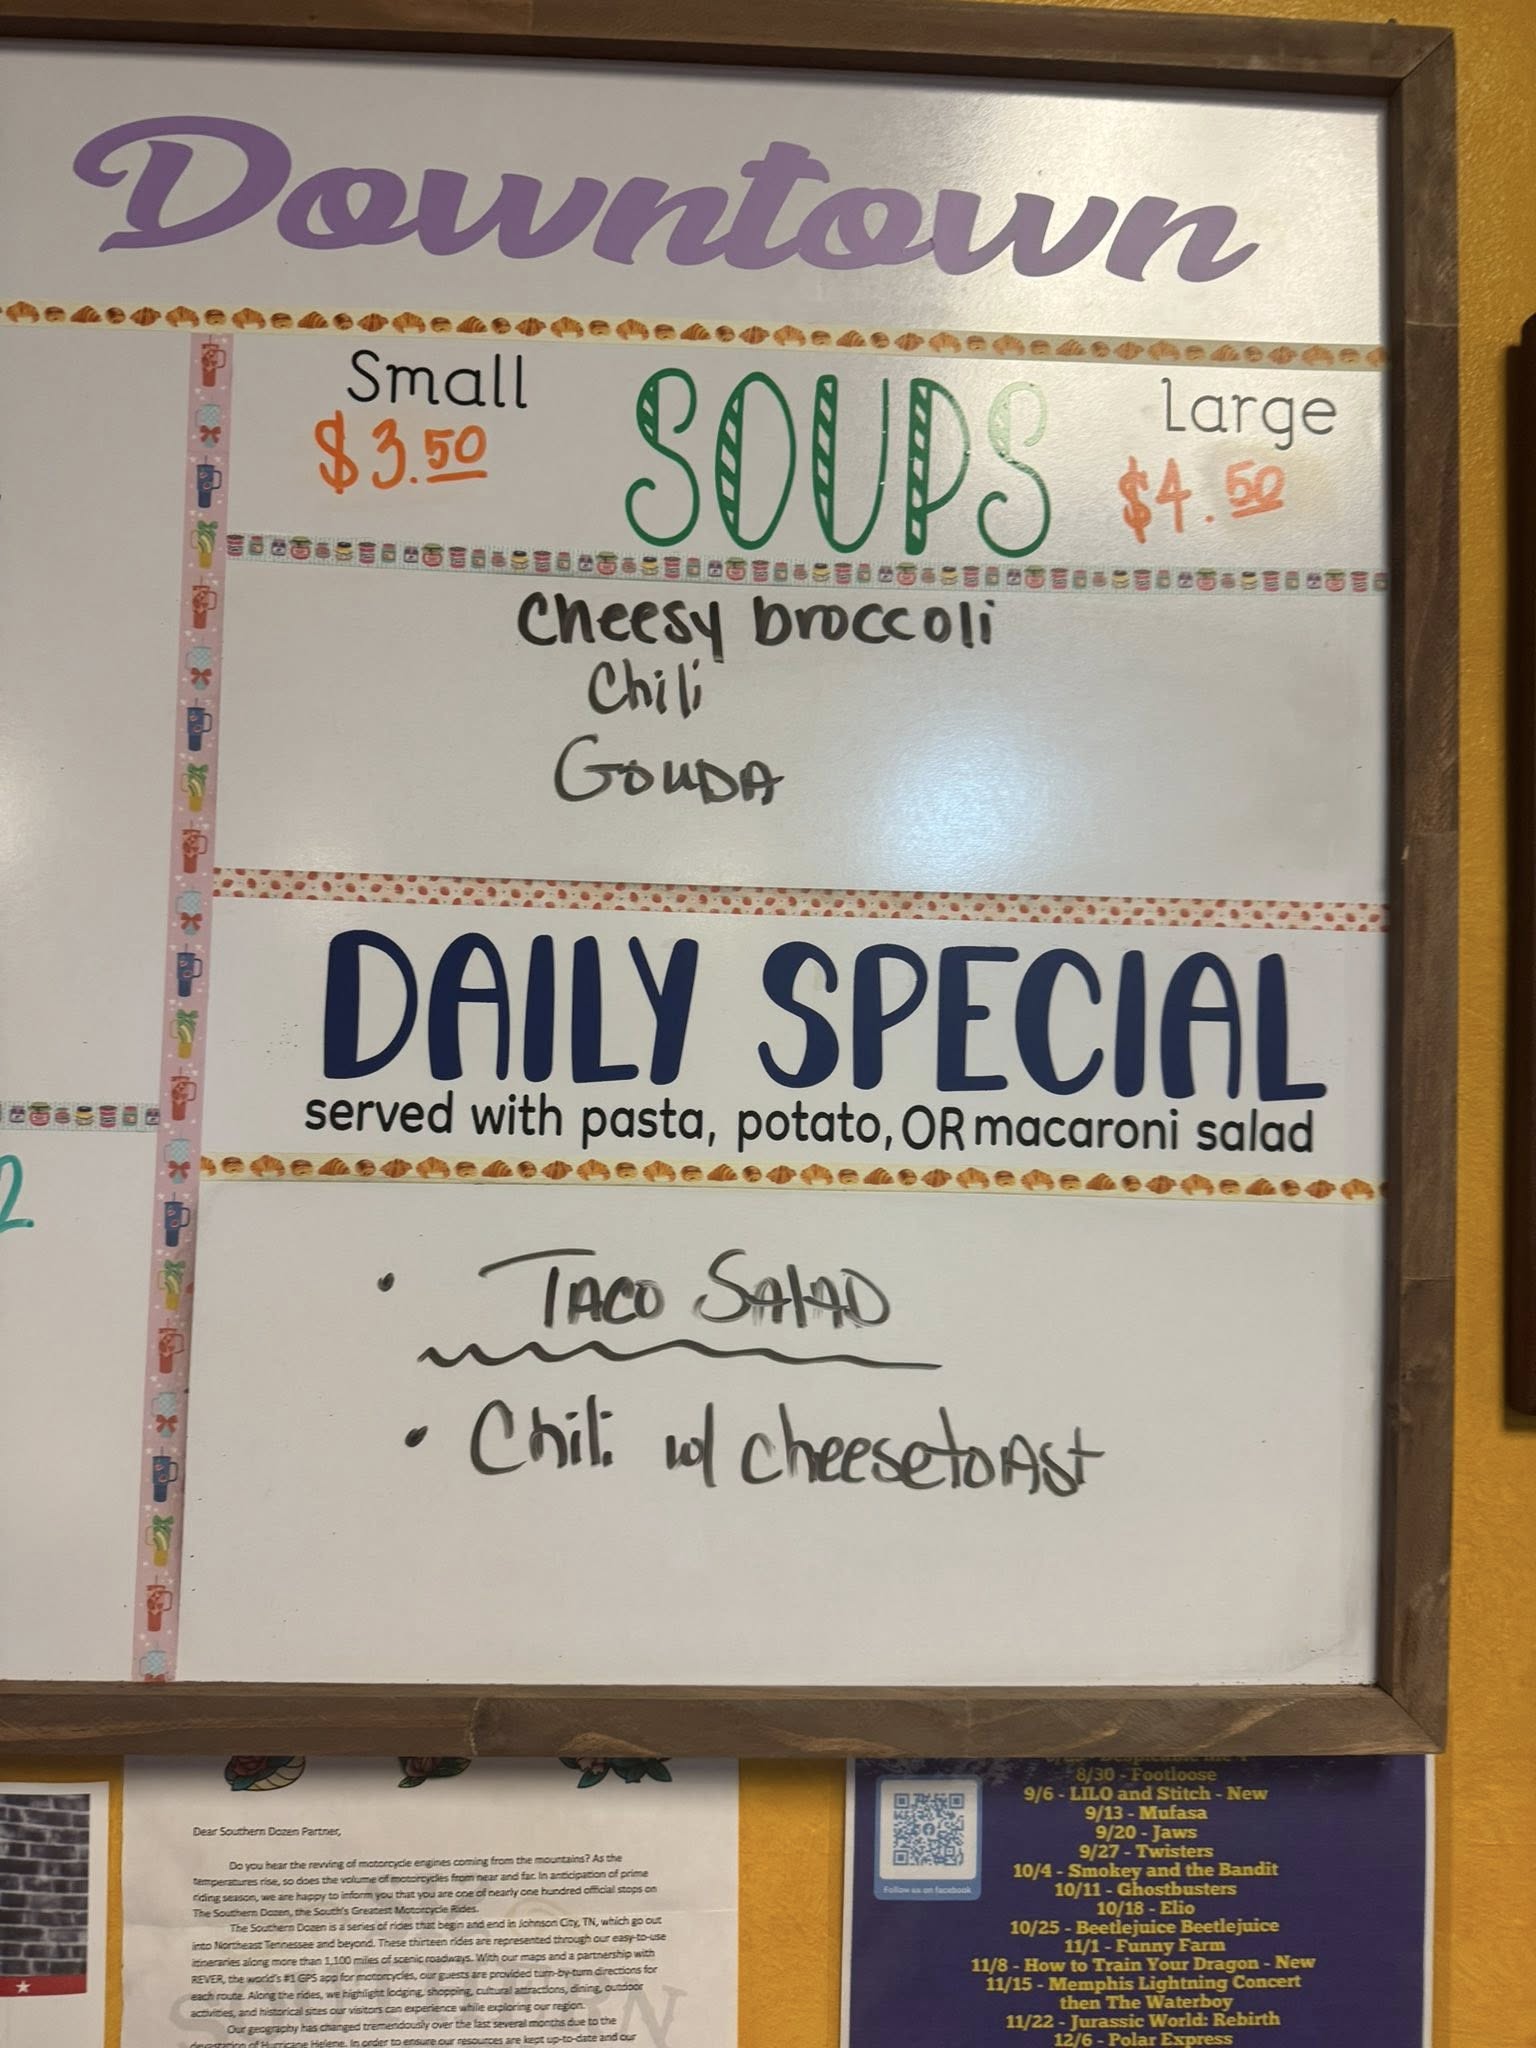 Downtown
Small
$3.50
SOUPS
Large
$4.50
Cheesy broccoli
Chili
GOUDA
DAILY SPECIAL
served with pasta, potato, OR macaroni salad
2
• TACO SALAD
• Chili w/ cheesetoast
Dear Southern Dozen Partner,
Do you hear the revving of motorcycle engines coming from the mountains? As the
temperatures rise, so does the volume of motorcycles from near and far. In anticipation of prime
riding season, we are happy to inform you that you are one of nearly one hundred official stops on
The Southern Dozen, the South's Greatest Motorcycle Rides.
The Southern Dozen is a series of rides that begin and end in Johnson City, TN, which go out
into Northeast Tennessee and beyond. These thirteen rides are represented through our easy-to-use
itineraries along more than 1,100 miles of scenic roadways. With our maps and a partnership with
REVER, the world's #1 GPS app for motorcycles, our guests are provided turn-by-turn directions for
each route. Along the rides, we highlight lodging, shopping, cultural attractions, dining, outdoor
activities, and historical sites our visitors can experience while exploring our region.
Our geography has changed tremendously over the last several months due to the
devastation of Hurricane Helene. In order to ensure our resources are kept up-to-date and our
Follow us on facebook
8/30 - Footloose
9/6 - LILO and Stitch - New
9/13 - Mufasa
9/20 - Jaws
9/27 - Twisters
10/4 - Smokey and the Bandit
10/11 - Ghostbusters
10/18 - Elio
10/25 - Beetlejuice Beetlejuice
11/1 - Funny Farm
11/8 - How to Train Your Dragon - New
11/15 - Memphis Lightning Concert
then The Waterboy
11/22 - Jurassic World: Rebirth
12/6 - Polar Express